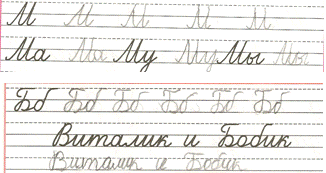 М М М М М
Ма Ма Му Му Мы Мы
Бб Бб Бб Бб Бб Бб
Виталик и Бобик
Виталик и Бобик